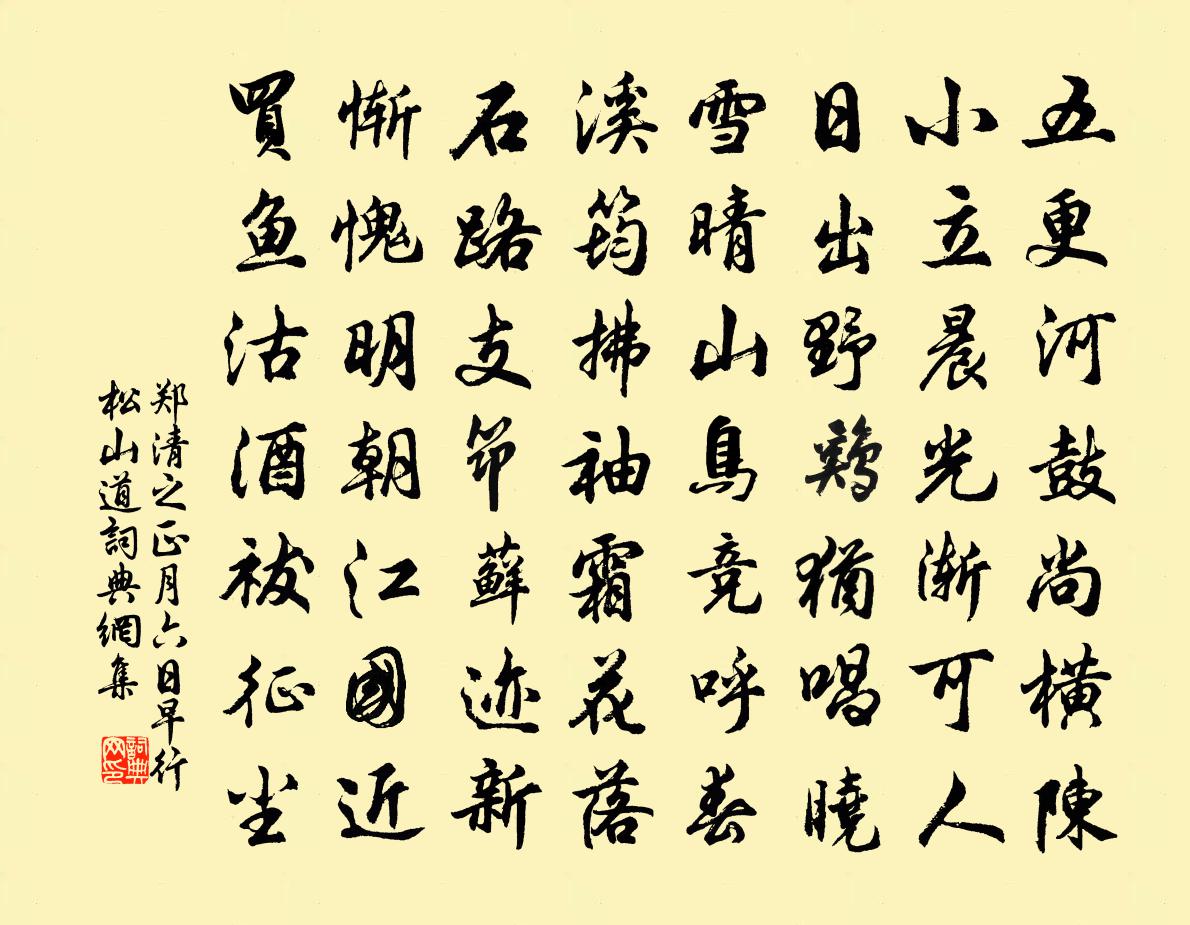 五更河鼓尚橫陳
小立晨光漸可人
日出野鷄猶唱曉
雪晴山鳥竞呼春
溪筠拂袖霜花落
石路支筇蘚迹新
慚愧明朝江國近
買魚沽酒祓征尘
郑清之正月六日早行
松山道詞典網集
詞典网印